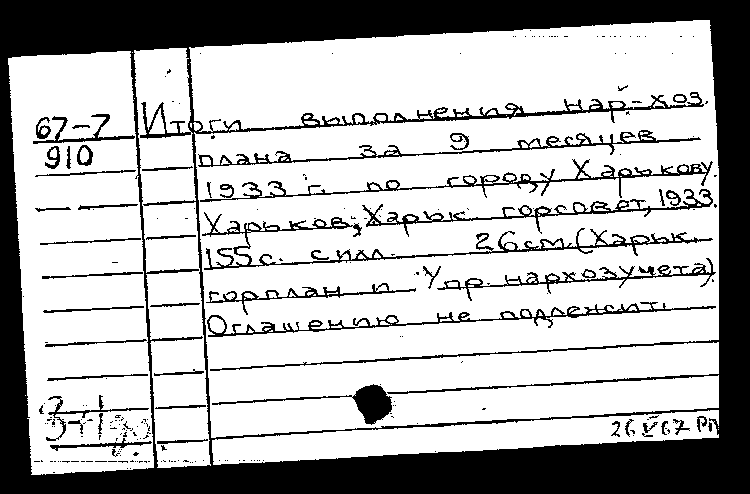 67-7 Итоги выполнения нар-хоз.
910 плана за 9 месяцев
1933 г. по городу Харькову.
Харьков, Харьк. горсовет, 1933.
155 с. с илл. 26 см. (Харьк.
горплан и Упр. нархозучета).
Оглашению не подлежит.
26 V 67 РП